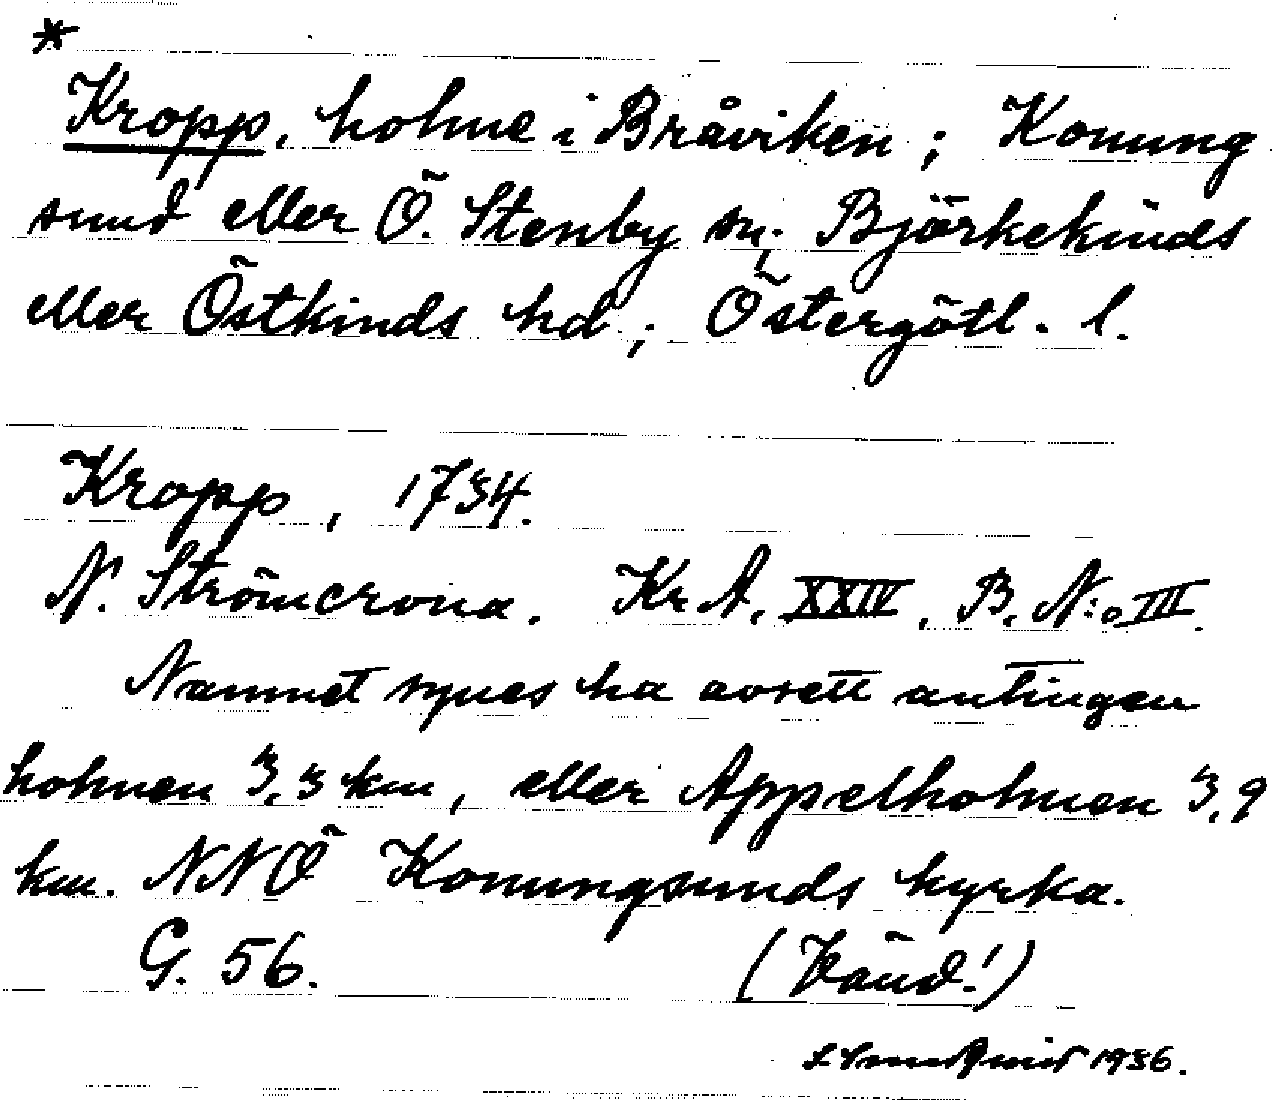 *
Kropp, holme i Bråviken; Konung
sund eller Ö. Stenby sn; Björkekinds
eller Östkinds hd.; Östergötl. l.
Kropp, 1734.
N. Strömcrona. Kr A. XXIV, B. N:o III.
Namnet synes ha avsett antingen
holmen 3,3 km, eller Appelholmen 3,9
km. NNÖ Konungsunds kyrka.
G. 56. (Vänd!)
1936.